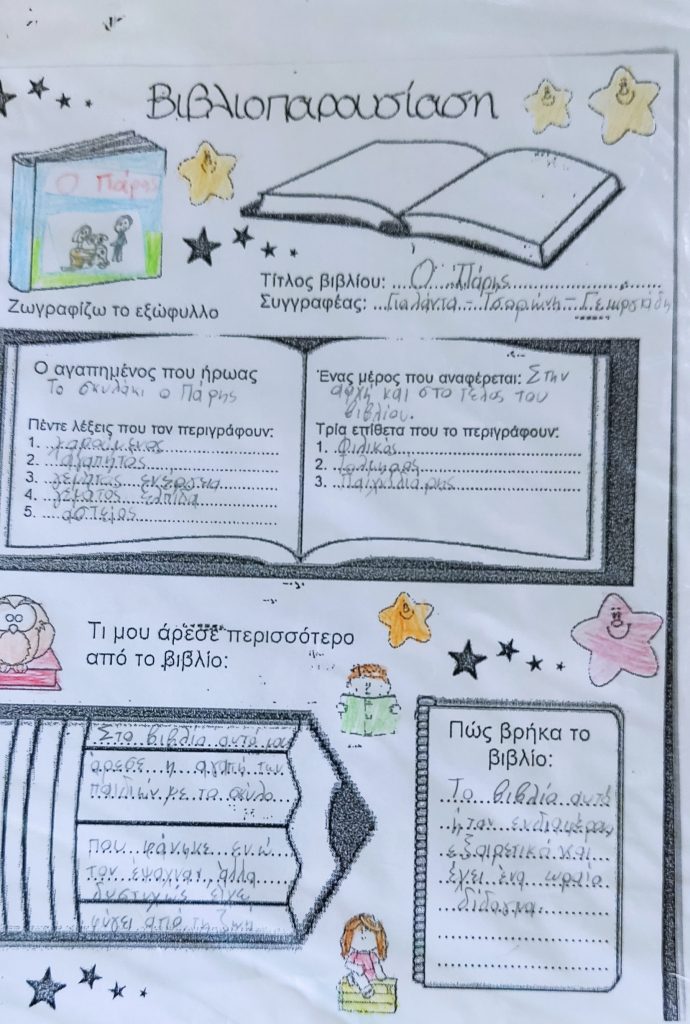 Βιβλιοπαρουσίαση
Ο Πάρης
Ζωγραφίζω το εξώφυλλο
Τίτλος βιβλίου: Ο Πάρης
Συγγραφέας: Γιολάντα - Τσορώνη - Γεωργιάδη
Ο αγαπημένος που ήρωας
Το σκυλάκι ο Πάρης
Πέντε λέξεις που τον περιγράφουν:
1. χαρούμενος
2. αγαπητός
3. γεμάτος ενέργεια
4. γεμάτος ελπίδα
5. αστείος
Ένας μέρος που αναφέρεται: Στην
αρχή και στο τέλος του
βιβλίου.
Τρία επίθετα που το περιγράφουν:
1. Φιλικός
2. Τολμηρός
3. Παιχνιδιάρης
Τι μου άρεσε περισσότερο
από το βιβλίο:
Στο βιβλίο αυτό μου
άρεσε η αγάπη των
παιδιών με το σκύλο
που φάνηκε ενώ
τον έψαχναν, αλλά
δυστυχώς είχε
φύγει από τη ζωή
Πώς βρήκα το
βιβλίο:
Το βιβλίο αυτό
ήταν ενδιαφέρον
εξαιρετικά και
έχει ένα ωραίο
δίδαγμα.